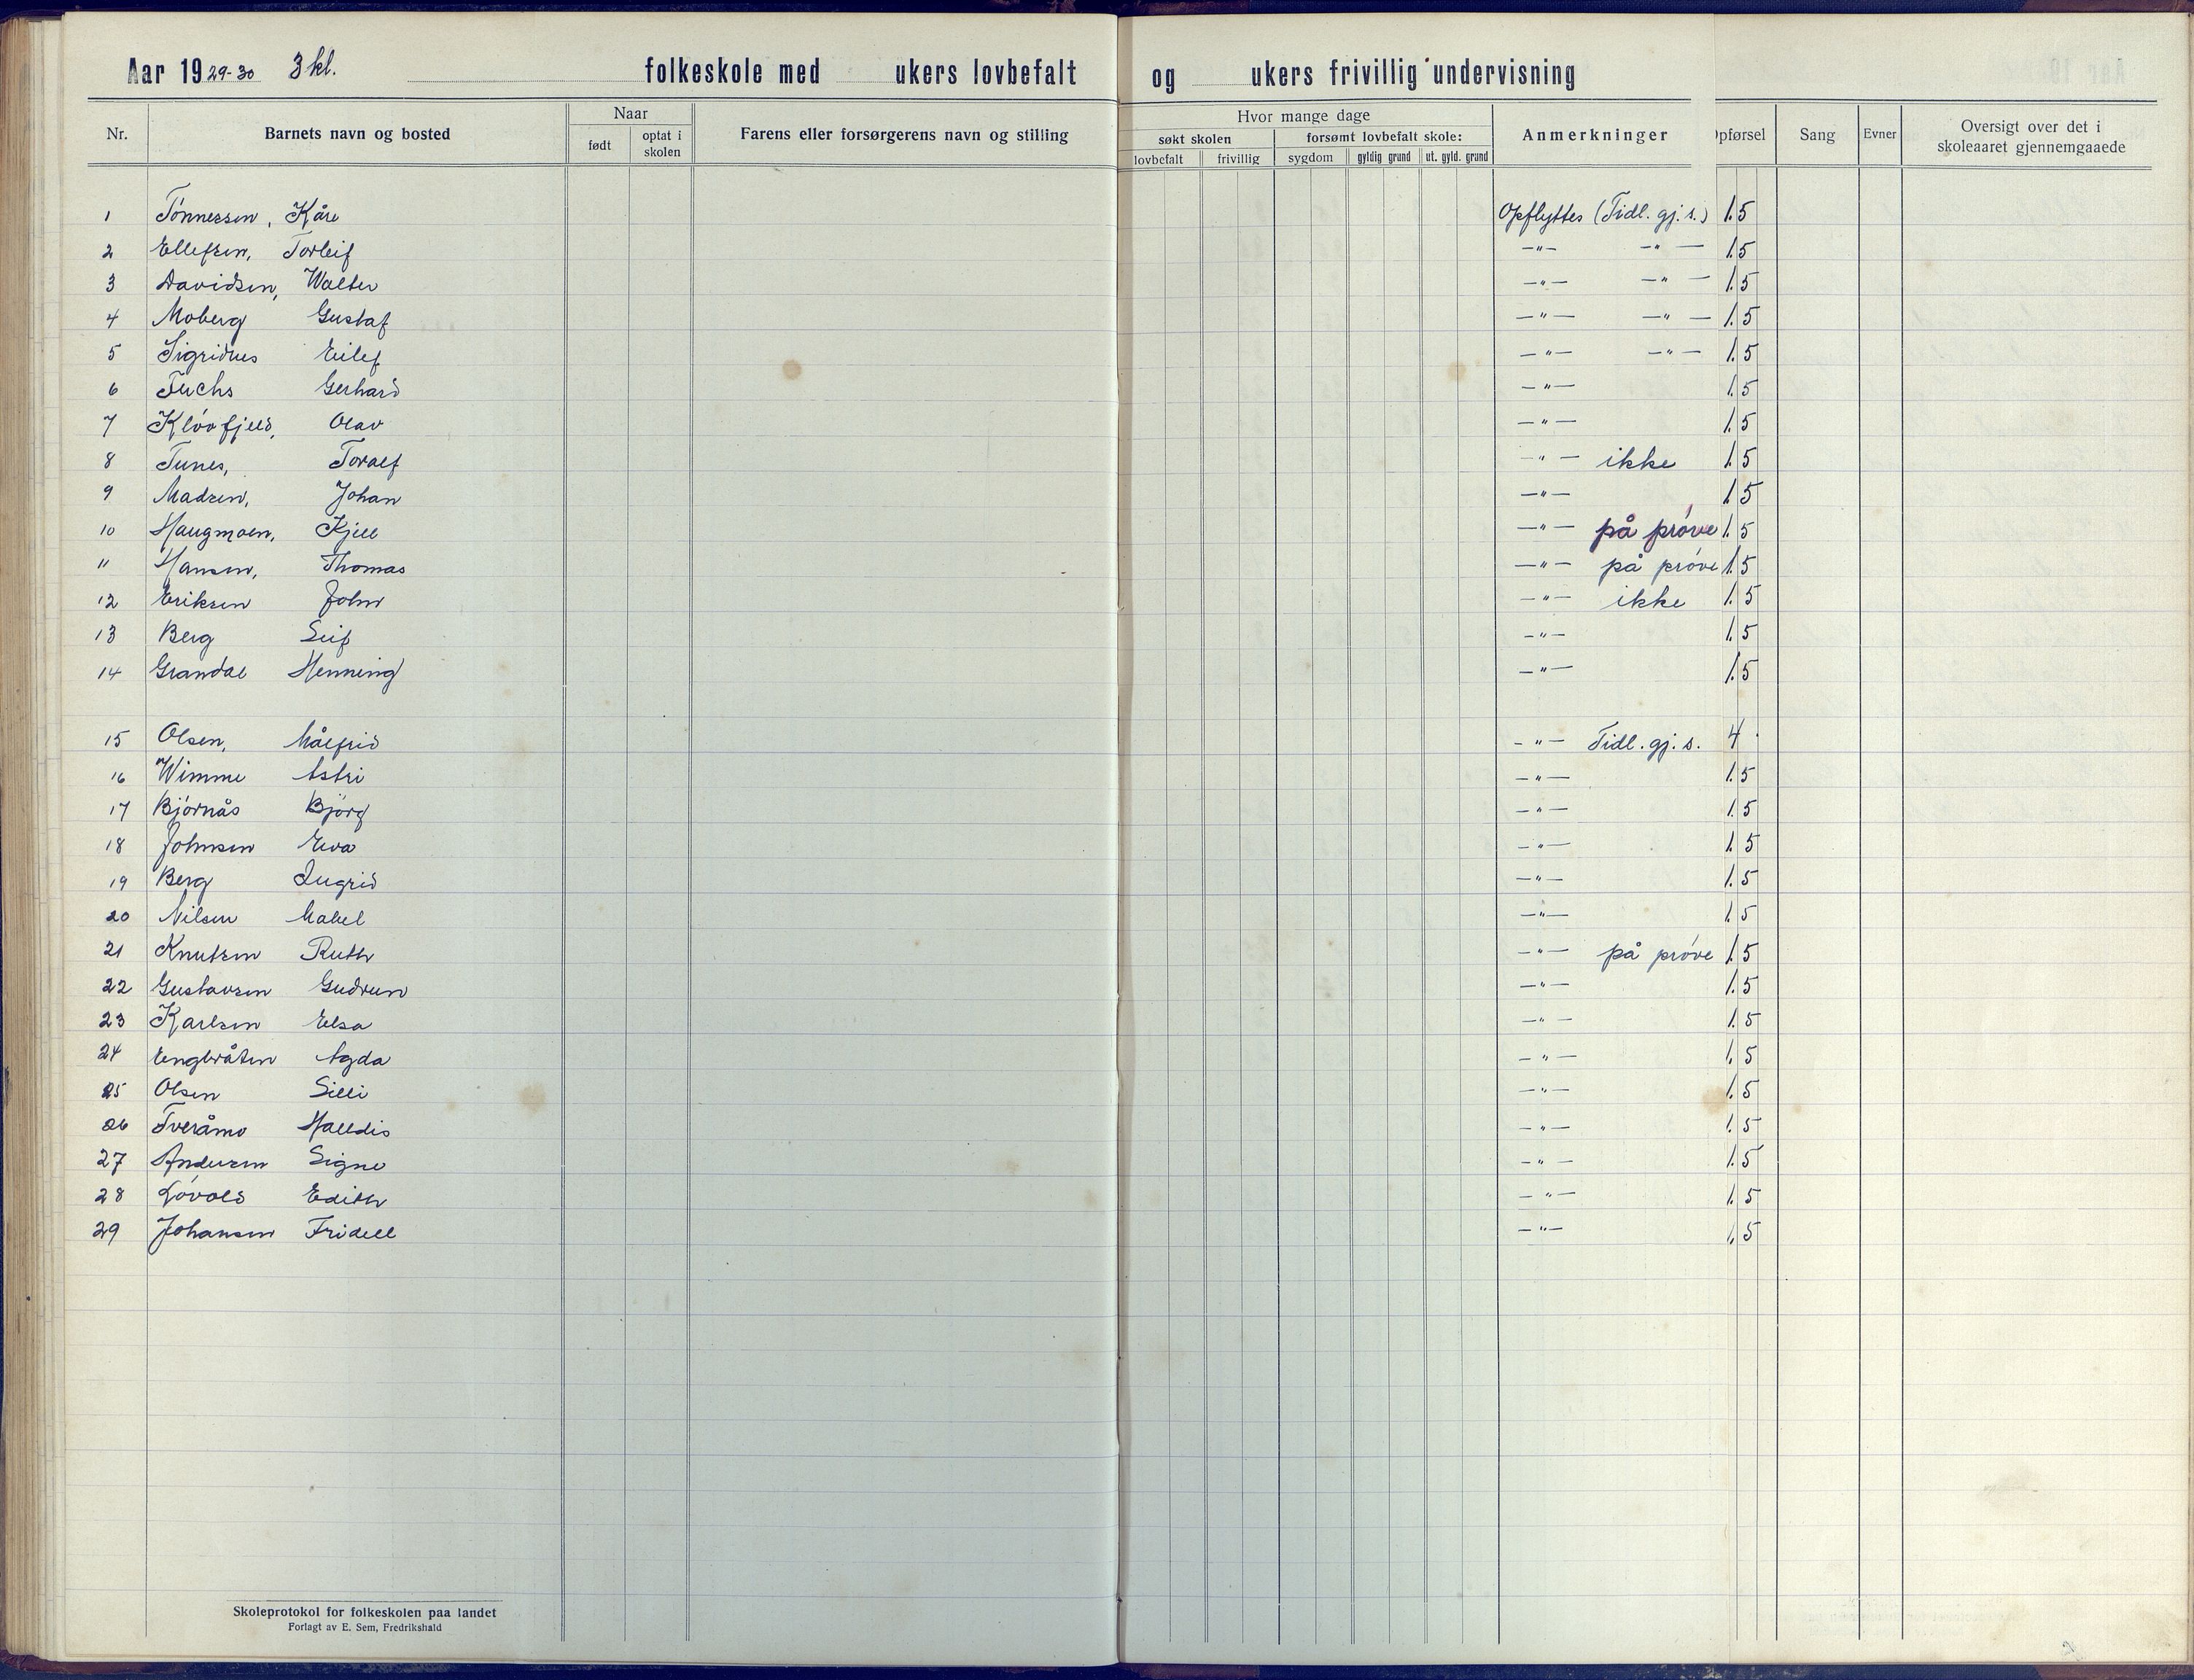 Aar 1929-30 3 kl. folkeskole med ukers lovbefalt og ukers frivillig undervisning
Nr. Barnets navn og bosted Naar født optat i skolen Farens eller forsørgerens navn og stilling Hvor mange dage søkt skolen lovbefalt frivillig forsømt lovbefalt skole: sygdom gyldig grund ut. gyld. grund Anmerkninger Opførsel Sang Evner Oversigt over det i skoleaaret gjennemgaaede
1 Tönnessen, Kåre Opflyttes (Tidl. gj. s.) 1.5
2 Ellefsen, Torleif —"— —"— 1.5
3 Davidsen, Walter —"— —"— 1.5
4 Moberg Gustaf —"— —"— 1.5
5 Sigridnes Eilef —"— —"— 1.5
6 Fuchs Gerhard —"— 1.5
7 Klövfjeld, Olav —"— 1.5
8 Tunes, Toralf —"— ikke 1.5
9 Madsen, Johan —"— 1.5
10 Haugmoen, Kjell —"— på pröve 1.5
11 Hansen, Thomas —"— på pröve 1.5
12 Eriksen John —"— ikke 1.5
13 Berg Leif —"— 1.5
14 Grandal Henning —"— 1.5
15 Olsen, Målfrid —"— Tidl. gj. s. 4
16 Wimme Astri —"— 1.5
17 Björnås Björg —"— 1.5
18 Johnsen Eva —"— 1.5
19 Berg Ingrid —"— 1.5
20 Nilsen Mabel —"— 1.5
21 Knutsen Ruth —"— på pröve 1.5
22 Gustavsen Gudrun —"— 1.5
23 Karlsen Elsa —"— 1.5
24 Engbråten Agda —"— 1.5
25 Olsen Lilli —"— 1.5
26 Tveråmo Halldis —"— 1.5
27 Andersen Signe —"— 1.5
28 Lövold Edith —"— 1.5
29 Johansen Fridell —"— 1.5
Skoleprotokol for folkeskolen paa landet
Forlagt av E. Sem, Fredrikshald